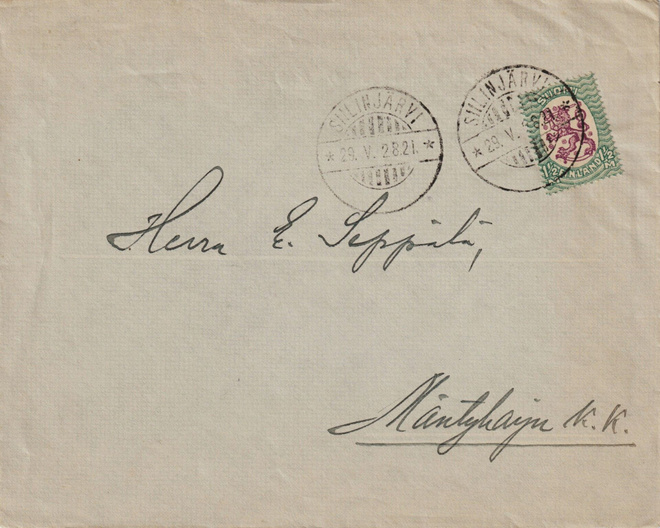 SIILINJÄRVI
* 29. V. 28.21. *
SIILINJÄRVI
* 29. V.
SUOMI
1½ FINLAND 1½
M
Herra E. Seppälä,
Mäntyharju K. K.